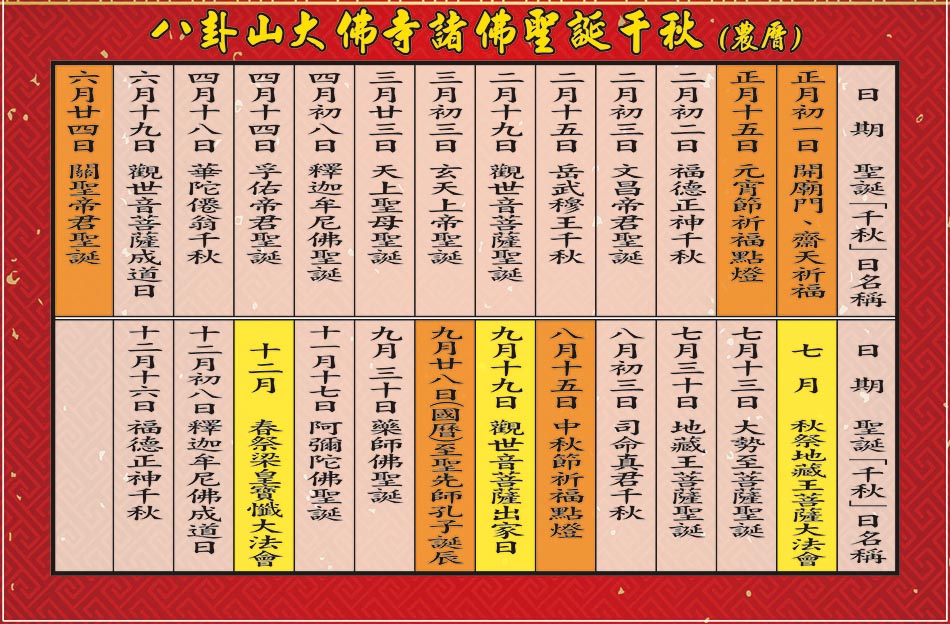 八卦山大佛寺諸佛聖誕千秋(農曆)
日期 聖誕「千秋」日名稱
正月初一日 開廟門、齋天祈福
正月十五日 元宵節祈福點燈
二月初二日 福德正神千秋
二月初三日 文昌帝君聖誕
二月十五日 岳武穆王千秋
二月十九日 觀世音菩薩聖誕
三月初三日 玄天上帝聖誕
三月廿三日 天上聖母聖誕
四月初八日 釋迦牟尼佛聖誕
四月十四日 孚佑帝君聖誕
四月十八日 華陀僊翁千秋
六月十九日 觀世音菩薩成道日
六月廿四日 關聖帝君聖誕
日期 聖誕「千秋」日名稱
七月 秋祭地藏王菩薩大法會
七月十三日 大勢至菩薩聖誕
七月三十日 地藏王菩薩聖誕
八月初三日 司命真君千秋
八月十五日 中秋節祈福點燈
九月十九日 觀世音菩薩出家日
九月廿八日(國曆)至聖先師孔子誕辰
九月三十日 藥師佛聖誕
十一月十七日 阿彌陀佛聖誕
十二月 春祭梁皇寶懺大法會
十二月初八日 釋迦牟尼佛成道日
十二月十六日 福德正神千秋